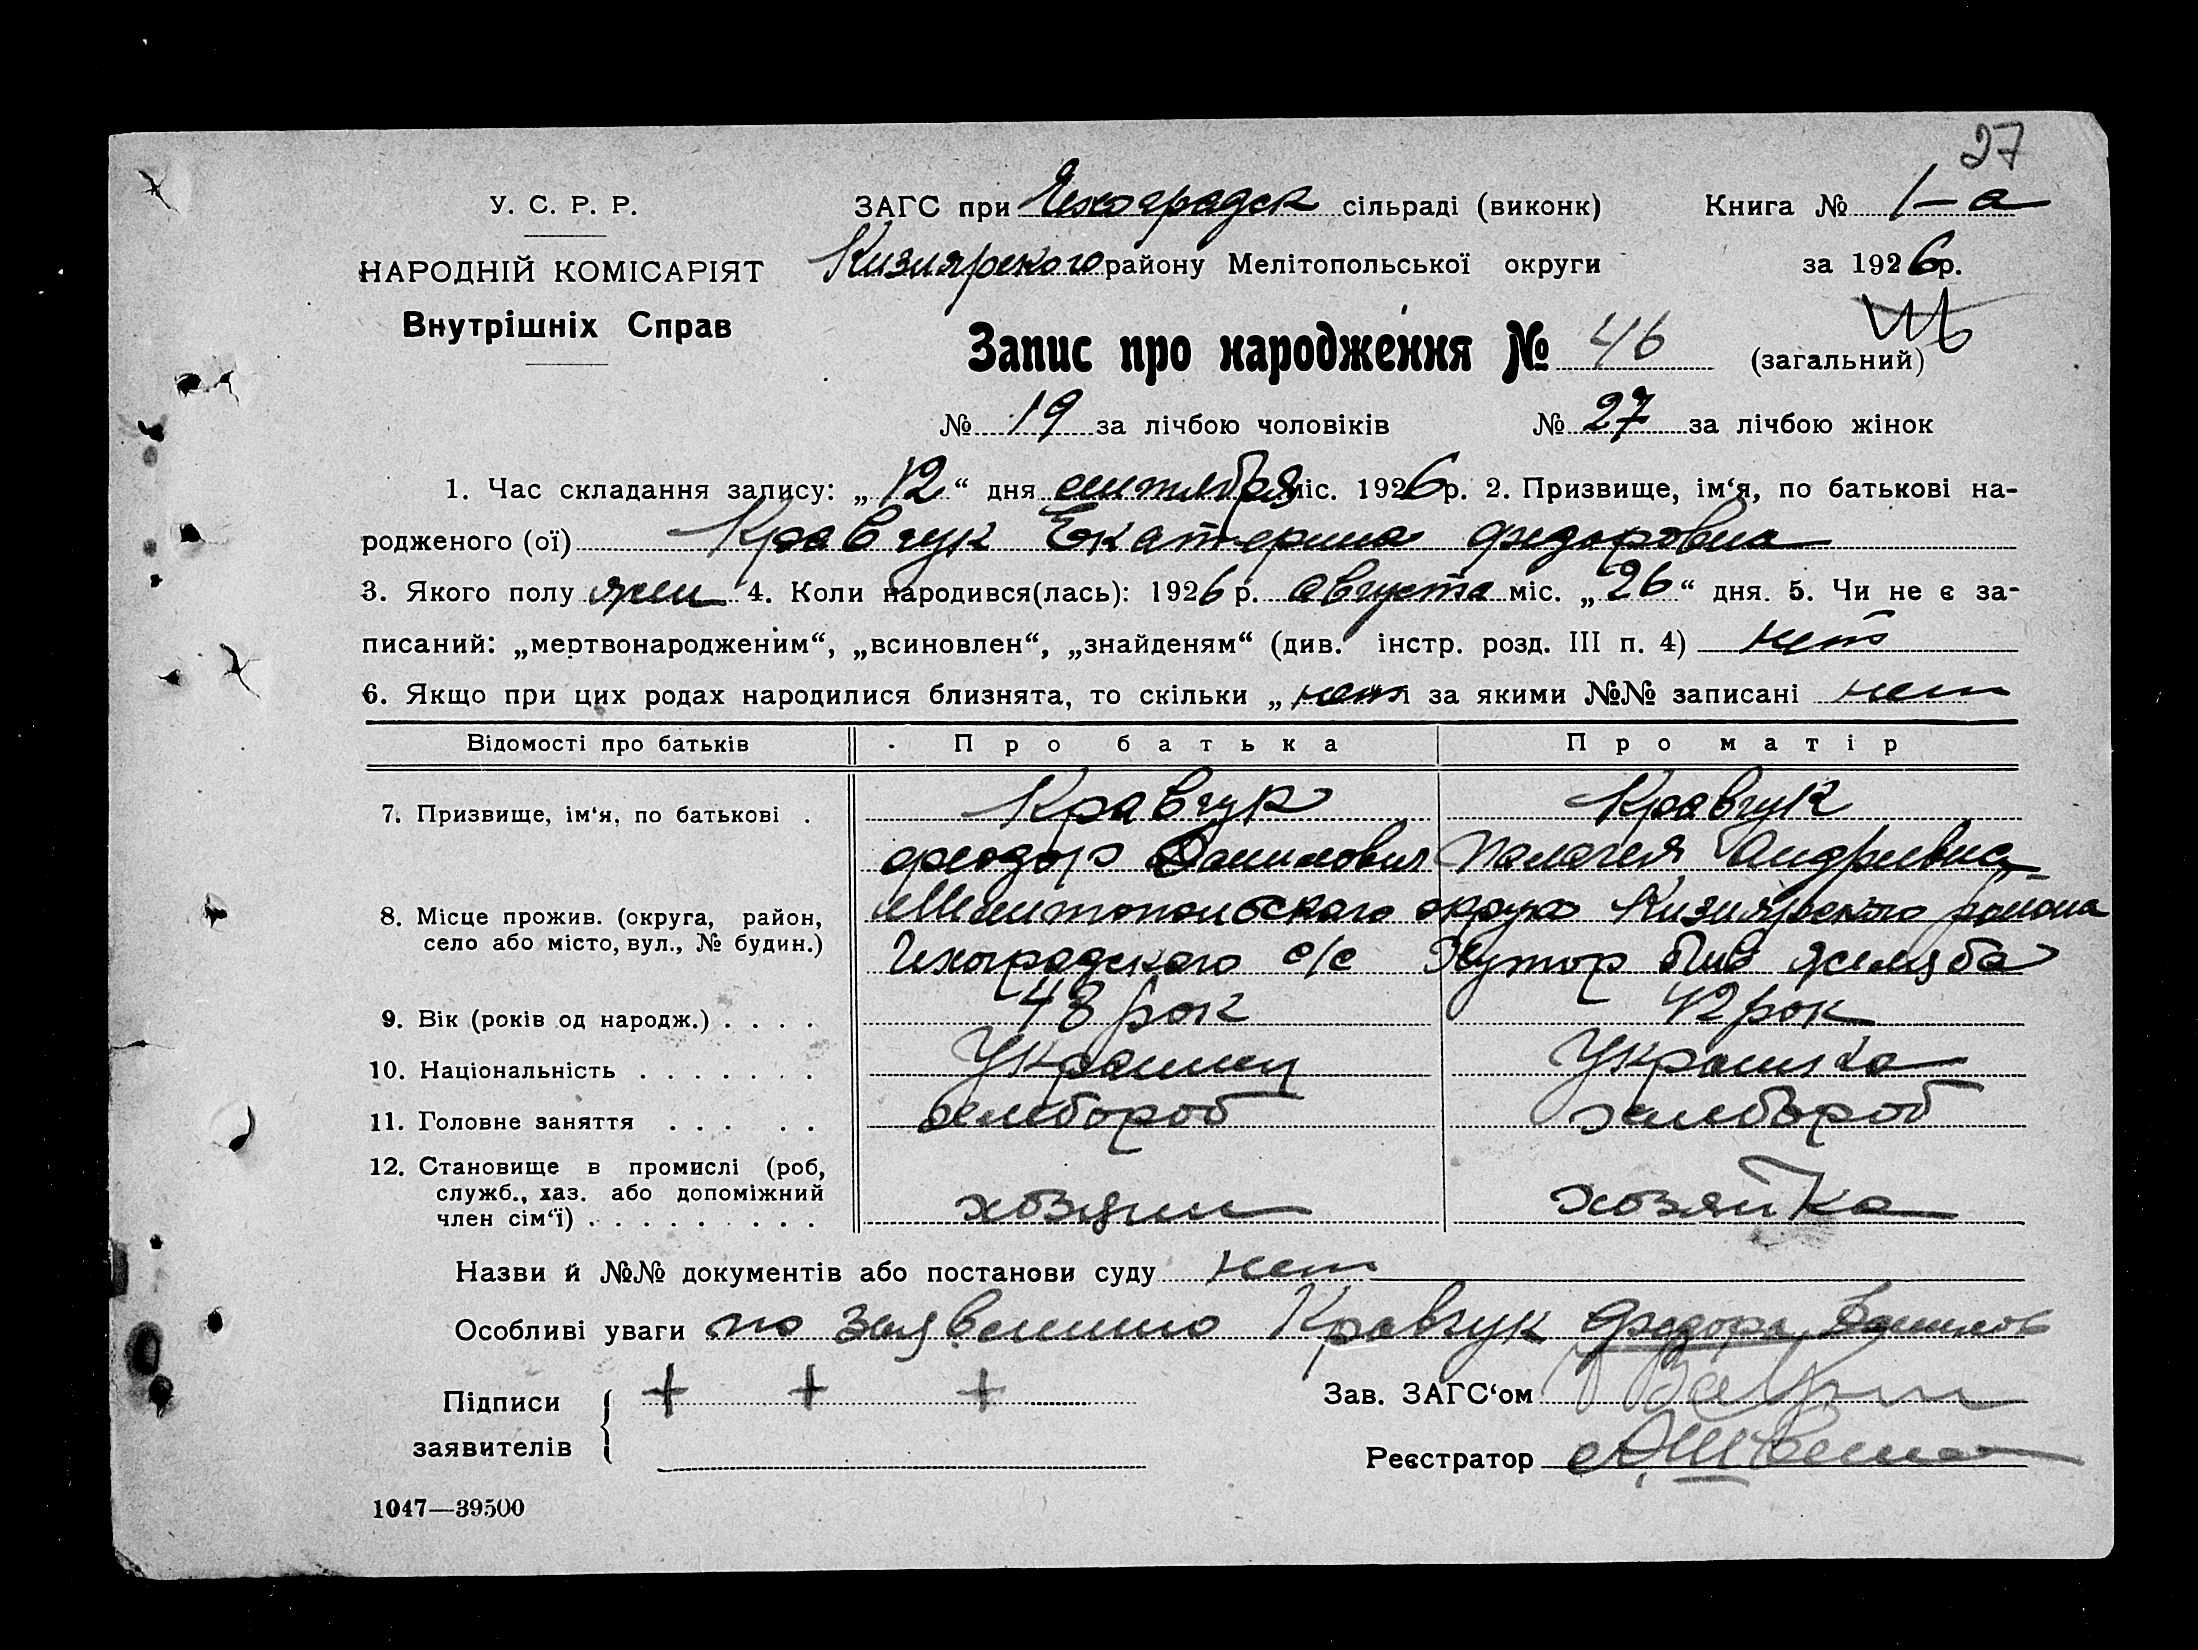 27
У. С. Р. Р. ЗАГС при Чехоградск сільраді (виконк) Книга № 1–а
НАРОДНІЙ КОМІСАРІЯТ Кизиярского району Мелітопольської округи за 1926р.
Внутрішніх Справ
Запис про народження № 46 (загальний)
№ 19 за лічбою чоловіків № 27 за лічбою жінок
1. Час складання запису: „12“ дня сентября міс. 1926р. 2. Призвище, ім‘я, по батькові на-
родженого (ої) Кравчук Екатерина Федоровна
3. Якого полу жен 4. Коли народився(лась): 1926 р. августа міс. „26“ дня. 5. Чи не є за-
писаний: „мертвонародженим“, „всиновлен“, „знайденям“ (див. інстр. розд. III п. 4) нет
6. Якщо при цих родах народилися близнята, то скільки „нет і за якими №№ записані нет
Відомості про батьків Про батька Про матір
7. Призвище, ім‘я, по батькові . Кравчук Кравчук
Феодор Данилович Палагея Андревна
8. Місце прожив. (округа, район, Мелитопольского округа Кизиярского района
село або місто, вул., № будин.) Чехоградского с/с Хутор
9. Вік (років од народж.) . . . . 48 рок 42 рок
10. Національність . . . . . . . Украинец Украинка
11. Головне заняття . . . . . хлебороб хлебороб
12. Становище в промислі (роб,
служб., хаз. або допоміжний
член сім‘ї) . . . . . . . . . хозяин хозяйка
Назви й №№ документів або постанови суду нет
Особливі уваги по заявению Кравчук Федора Данилов
Підписи + + + Зав. ЗАГС‘ом
заявителів Реєстратор
1047—39500